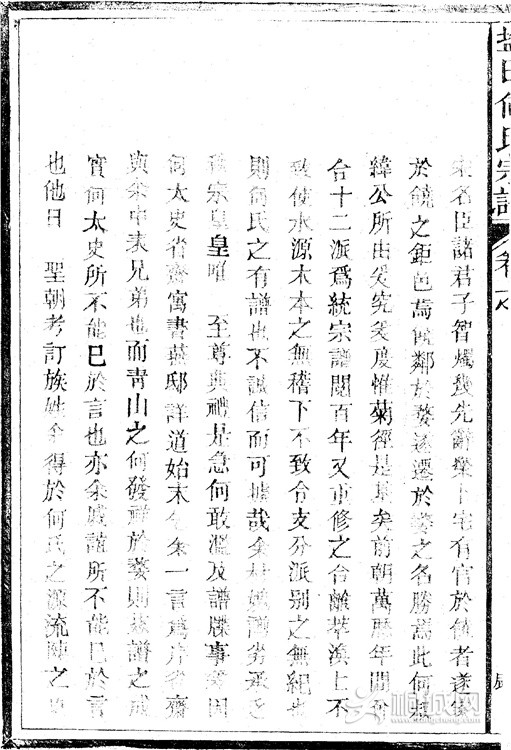 盐田何氏宗譜
卷
宋名臣諸君子智燭幾先辭榮卜宅有官於饒者遂家
於饒之鉅邑焉鄰於婺遂遷於婺之名勝焉此何
緯公所由爰究爰度惟菊徑是基矣前朝萬曆年間
合十二派爲統宗譜閱百年又重修之合離萃渙上不
致使水源木本之無稽下不致令支分派別之無紀
則何氏之有譜也不誠信而可據哉余
宗皇皇唯 至尊典禮是急何敢濫及譜牒事
何太史省齋寓書燕邸詳道始末余一言爲序省齋
與余中表兄弟也而青山之何發祥於婺則茲譜之成
實何太史所不能已於言也亦余所不能已於言
也他日 聖朝考訂族姓余得於何氏之源流陳之